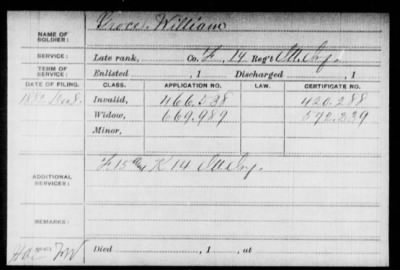 NAME OF SOLDIER: Groce, William
SERVICE: Late rank, Co. F, 14 Reg't Ill. Inf.
TERM OF SERVICE: Enlisted , 1 Discharged , 1
DATE OF FILING. CLASS. APPLICATION NO. LAW. CERTIFICATE NO.
Invalid, 466.538 420.288
Widow, 669.989 592.239
Minor,
ADDITIONAL SERVICES: K 14 Ill. Inf.
REMARKS:
Died , 1 , at